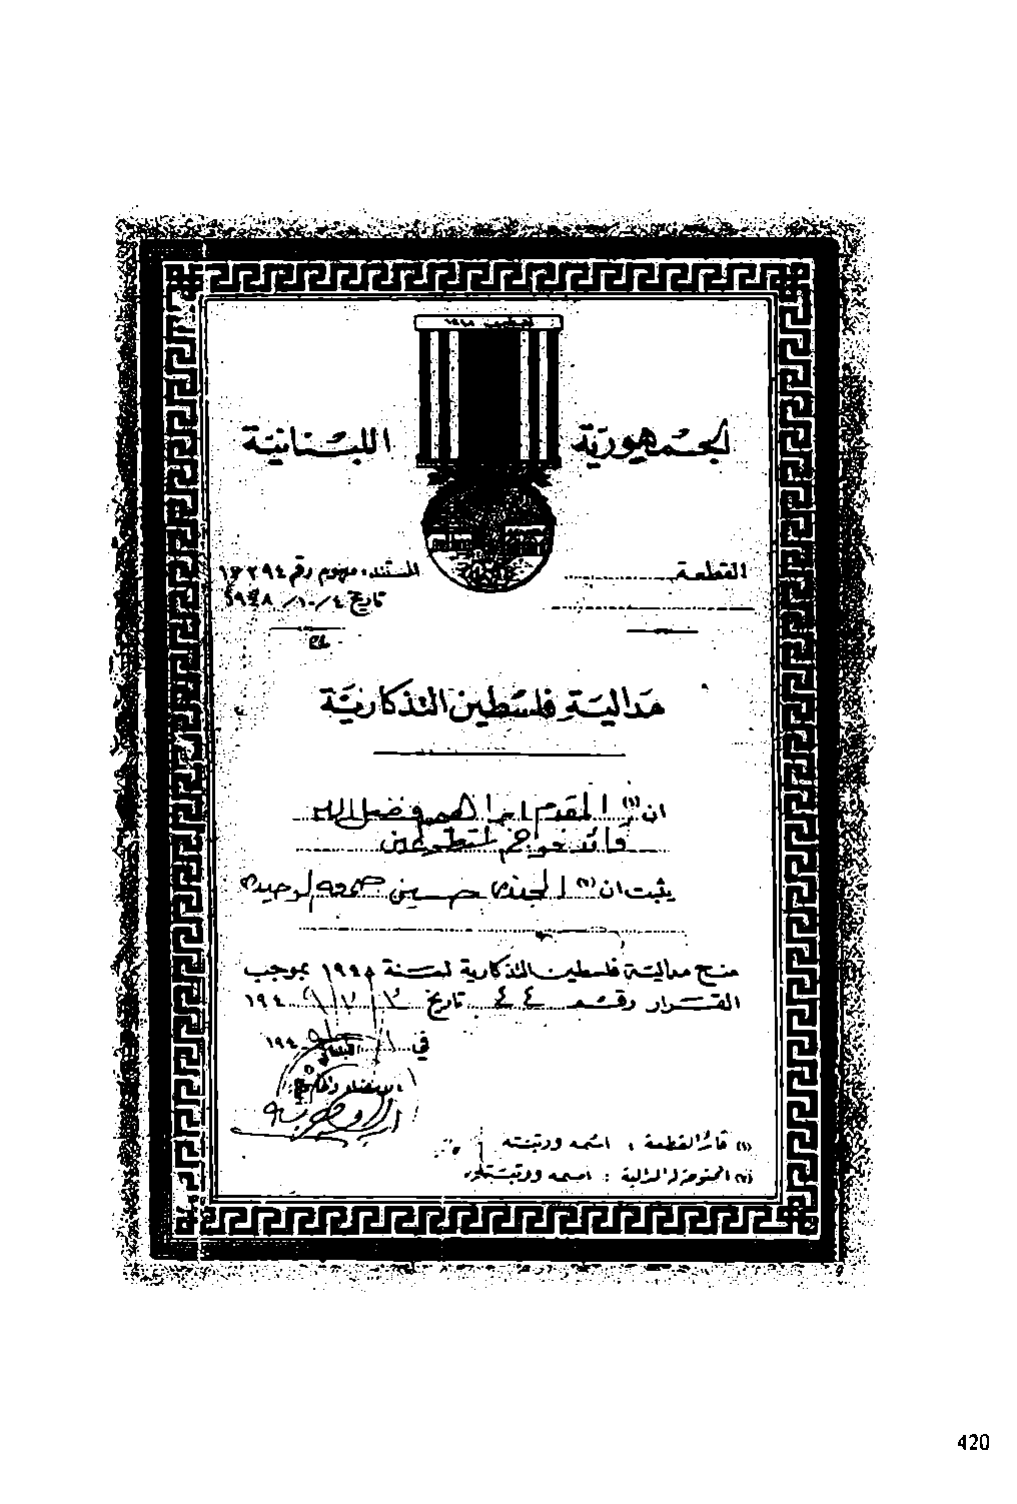 الجمهورية اللبنانية
القطعة
المستند: مرسوم رقم ١٣٢٩٤
تاريخ ٤/١٠/١٩٤٨
مدالية فلسطين التذكارية
ان (١) المقدم ابراهيم فضل الله
قائد فوج المتطوعين
يثبت ان (٢) الجندي حسين جمعه
منح مدالية فلسطين التذكارية لسنة ١٩٤٨ بموجب
القرار رقم ٤٤ تاريخ ١٩٤
في ١٩٤
الامضاء
(١) قائد القطعة : اسمه ورتبته
(٢) الممنوحة له المدالية : اسمه ورتبته
420